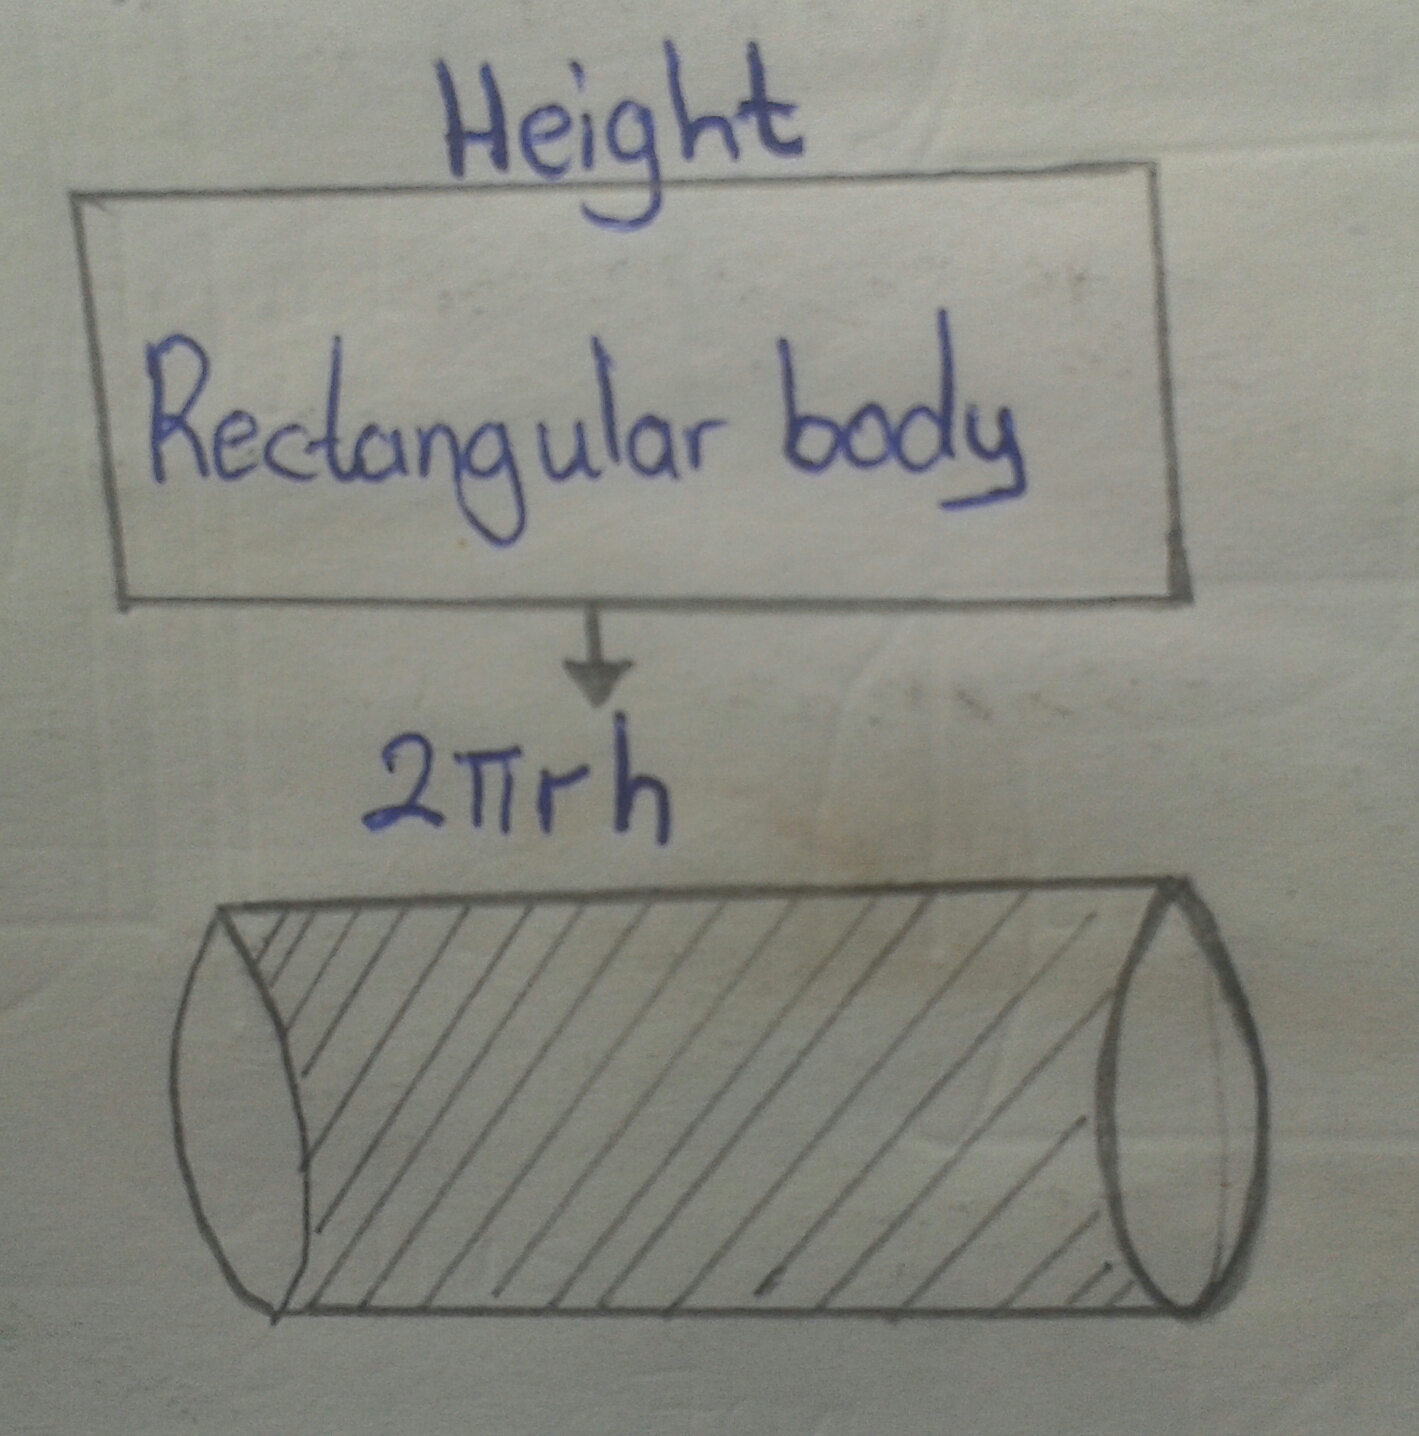 Height
Rectangular body
2πrh